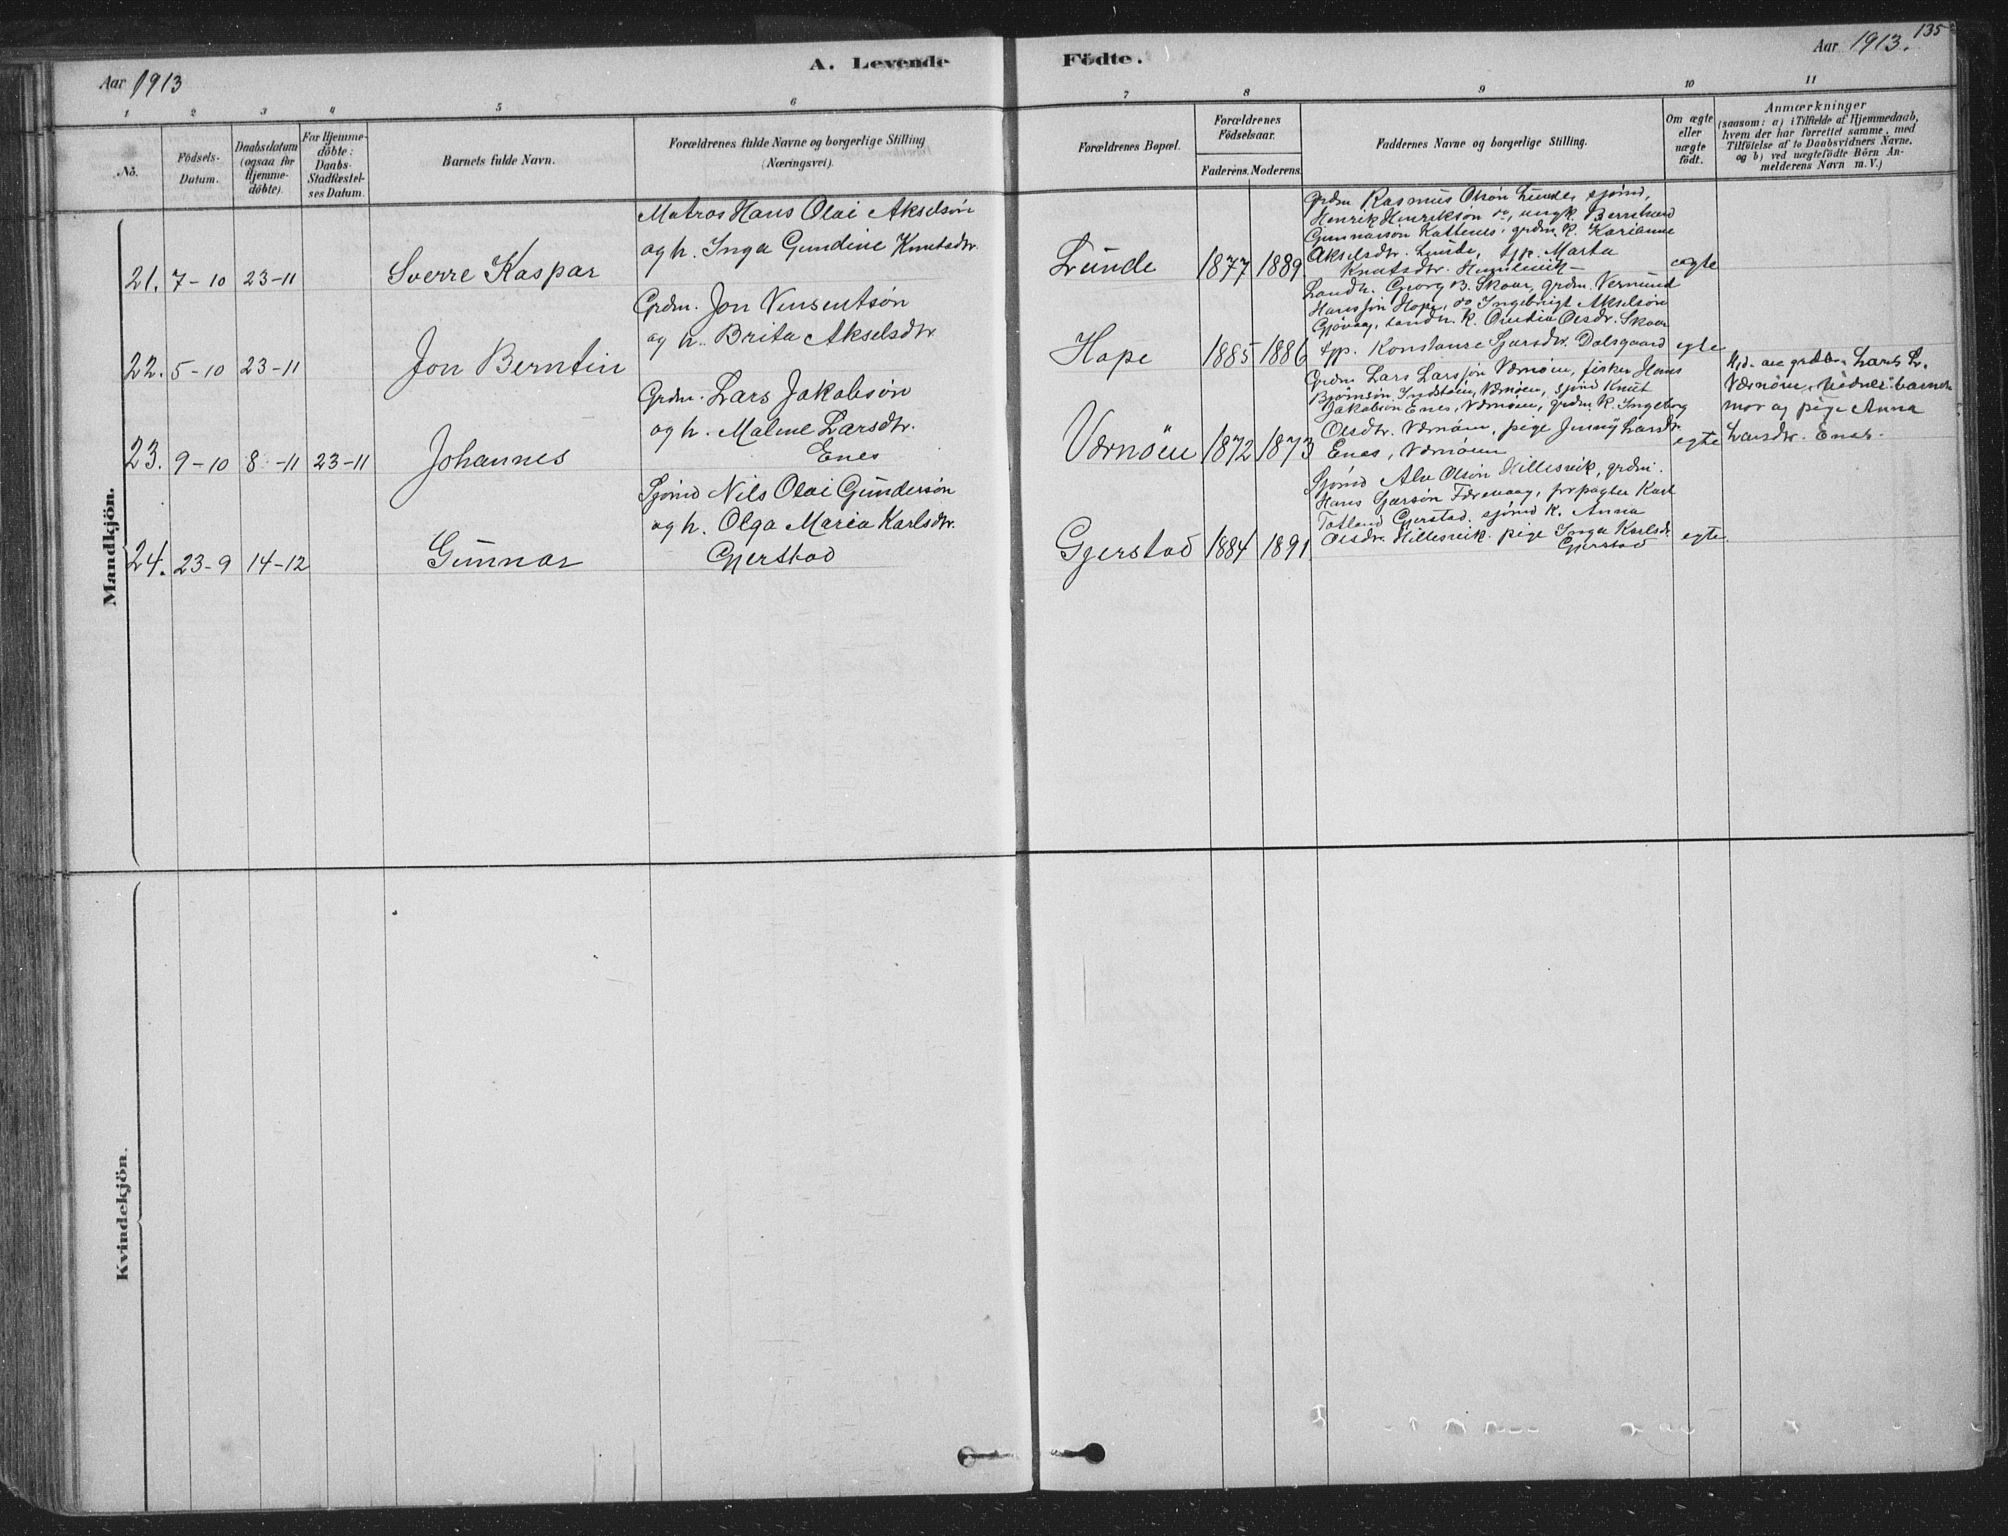 Aar 1913
A. Levende
Födte.
Aar 1913.
135
1
2
3
4
5
6
7
8
9
10
11
No.
Födsels-
Datum.
Daabsdatum
(ogsaa for
Hjemme-
döbte).
For Hjemme-
döbte:
Daabs-
Stadfæstel-
ses Datum.
Barnets fulde Navn.
Forældrenes fulde Navne og borgerlige Stilling
(Næringsvei).
Forældrenes Bopæl.
Forældrenes
Födselsaar.
Faderens.
Moderens.
Faddernes Navne og borgerlige Stilling.
Om ægte
eller
uægte
födt.
Anmærkninger
(saasom: a) i Tilfælde af Hjemmedaab,
hvem der har forrettet samme, med
Tilföielse af to Daabsvidners Navne,
og b) ved uægtefödte Börn An-
melderens Navn m. V.)
Mandkjön.
21. 7-10 23-11
Sverre Kaspar
Matros Hans Olai Akselsøn
og h. Inga Gundine Knutsdtr.
Lunde
1877 1889
Grdm Rasmus Olsøn Lunde, sjømd,
Henrik Henriksøn do, ungk. Berntsen
Gunnarsøn Kattenes, grdm. K. Karianne
Akselsdtr. Lunde, tjp. Marta
Knutsdtr. Humlevik
ægte
22. 5-10 23-11
Jon Berntin
Grdm. Jon Vinsentsøn
og h. Brita Akselsdtr
Hope
1885 1886
Landh. Georg B. Skaar, grdm. Vermund
Hansson Hope, do Ingebrigt Akselsøn
Gjøvaag, landh. K. Olsdtr. Skaar
tjp. Konstanse Dalsgaard
egte
23. 9-10 8-11 23-11
Johannes
Grdm. Lars Jakobsøn
og h. Malene Larsdtr.
Enes
Værnøen
1872 1873
Grdm Lars Larsson Værnøen, fisker Hans
Bjørnsøn Indstøen, Værnøen, sjømd Knut
Jakobsøn Enes, Værnøen, grdm. K. Ingeborg
Olsdtr. Værnøen, pige Jenny Larsdtr
Enes, Værnøen
egte
Hjd. av grdbr. Lars L.
Værnøen, Vidner: barnets
mor og pige Anna
Larsdtr. Enes.
24. 23-9 14-12
Gunnar
Sjømd Nils Olai Gundersøn
og h. Olga Maria Karlsdtr.
Gjerstad
Gjerstad
1884 1891
Sjømd Alv Olsøn Hillesvik, grdm.
Hans Gjærsøn Færevaag, forpagter Karl
Totland Gjerstad, sjømd K. Anna
Olsdtr. Hillesvik, pige Inga Karlsd.
Gjerstad
egte
Kvindekjön.